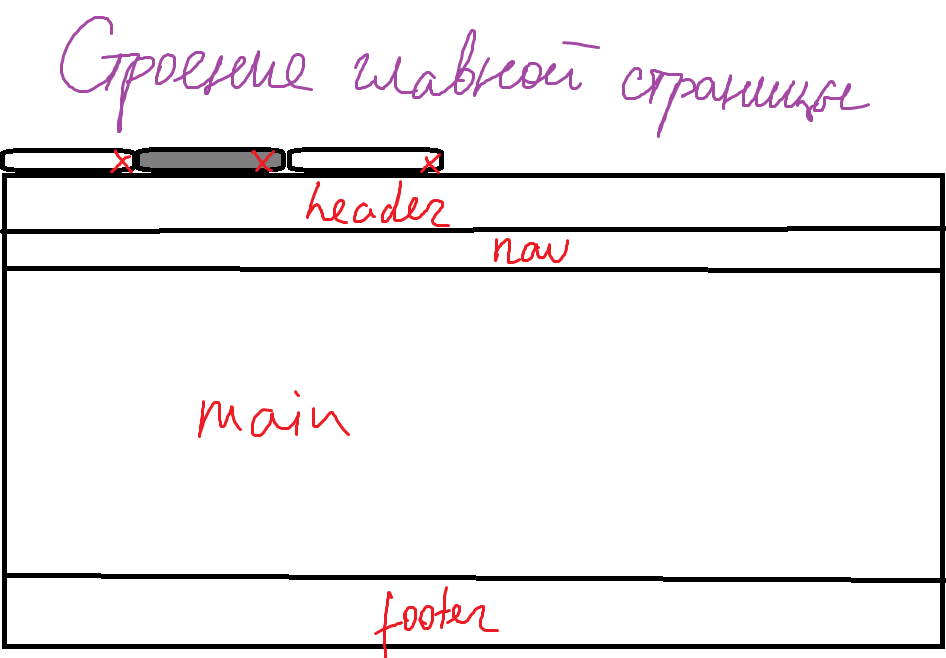 Строение главной страницы
header
nav
main
footer